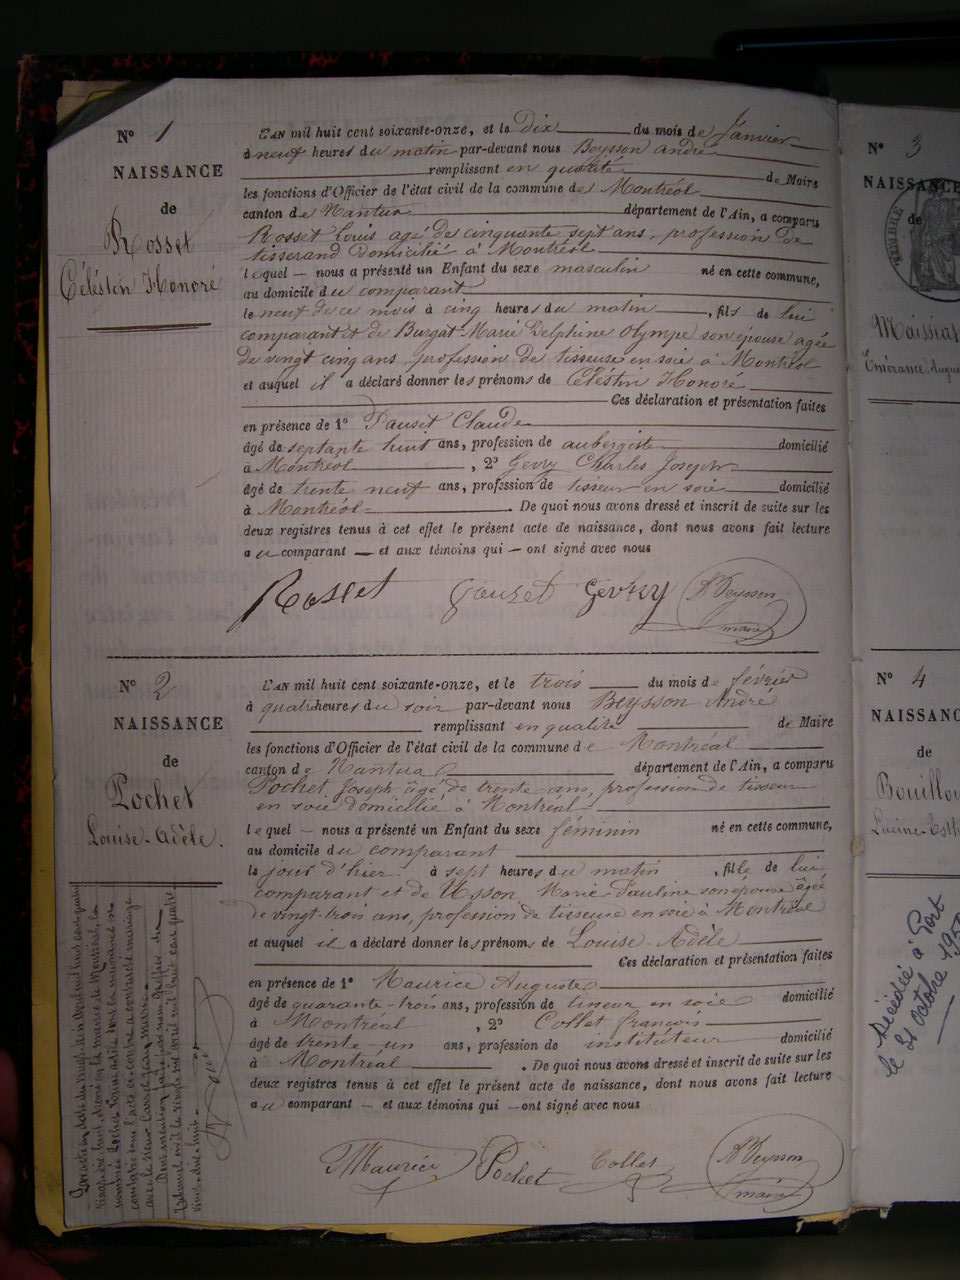 N° 1
NAISSANCE
de
Rosset
Céléstin Honoré
L'AN mil huit cent soixante-onze, et le Dix du mois de Janvier
à neuf heures du matin par-devant nous Beysson André
remplissant en qualité de Maire
les fonctions d'Officier de l'état civil de la commune de Montréal
canton de Nantua département de l'Ain, a comparu
Rosset Louis agé de cinquante sept ans, profession de
tisserand Domicilié à Montréal
lequel — nous a présenté un Enfant du sexe masculin né en cette commune,
au domicile du comparant
le neuf de ce mois à cinq heures du matin, fils de lui
comparant et de Burgat Marie Delphine Olympe son épouse agée
de vingt cinq ans, profession de tisseuse en soie à Montréal
et auquel il a déclaré donner les prénoms de Céléstin Honoré
Ces déclaration et présentation faites
en présence de 1° Fauset Claude
âgé de septante huit ans, profession de aubergiste domicilié
à Montréal, 2° Gevry Charles Joseph
âgé de trente neuf ans, profession de tisseur en soie domicilié
à Montréal. De quoi nous avons dressé et inscrit de suite sur les
deux registres tenus à cet effet le présent acte de naissance, dont nous avons fait lecture
au comparant — et aux témoins qui — ont signé avec nous
Rosset Gevrey A Beysson
maire
N° 2
NAISSANCE
de
Pochet
Louise-Adèle.
L'AN mil huit cent soixante-onze, et le trois du mois de février
à quatre heures du soir par-devant nous Beysson André
remplissant en qualité de Maire
les fonctions d'Officier de l'état civil de la commune de Montréal
canton de Nantua département de l'Ain, a comparu
Pochet Joseph âgé de trente ans, profession de tisseur
en soie domicilié à Montréal
lequel — nous a présenté un Enfant du sexe féminin né en cette commune,
au domicile du comparant
le jour d'hier à sept heures du matin, fille de lui
comparant et de Usson Marie-Pauline son épouse âgée
de vingt-trois ans, profession de tisseuse en soie à Montréal
et auquel il a déclaré donner les prénoms de Louise-Adèle
Ces déclaration et présentation faites
en présence de 1° Maurice Auguste
âgé de quarante-trois ans, profession de tisseur en soie domicilié
à Montréal, 2° Collet françois
âgé de trente-un ans, profession de instituteur domicilié
à Montréal. De quoi nous avons dressé et inscrit de suite sur les
deux registres tenus à cet effet le présent acte de naissance, dont nous avons fait lecture
au comparant — et aux témoins qui — ont signé avec nous
Maurice Pochet Collet A Beysson
maire
N° 3
NAISSANCE
de
N° 4
NAISSANC
de
Bouillo
décédée à Port
le 31 octobre 195